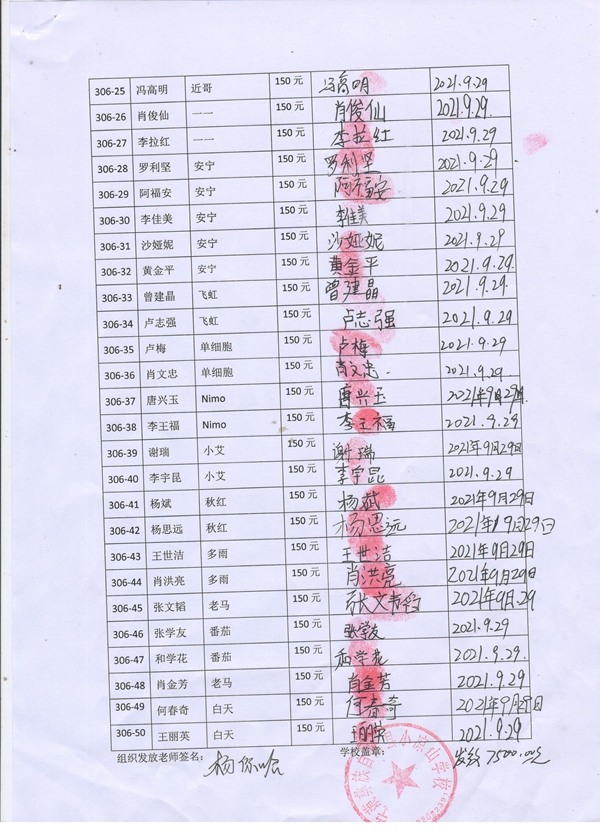 306-25 冯高明 近哥 150 元 冯高明 2021.9.29
306-26 肖俊仙 一一 150 元 肖俊仙 2021.9.29.
306-27 李拉红 一一 150 元 李拉红 2021.9.29
306-28 罗利坚 安宁 150 元 罗利坚 2021.9.29
306-29 阿福安 安宁 150 元 阿福安 2021.9.29.
306-30 李佳美 安宁 150 元 李佳美 2021.9.29.
306-31 沙娅妮 安宁 150 元 沙娅妮 2021.9.29
306-32 黄金平 安宁 150 元 黄金平 2021.9.29.
306-33 曾建晶 飞虹 150 元 曾建晶 2021.9.29.
306-34 卢志强 飞虹 150 元 卢志强 2021.9.29
306-35 卢梅 单细胞 150 元 卢梅 2021.9.29
306-36 肖文忠 单细胞 150 元 肖文忠. 2021.9.29.
306-37 唐兴玉 Nimo 150 元 唐兴玉 2021年9月29日
306-38 李王福 Nimo 150 元 李王福 2021.9.29
306-39 谢瑞 小艾 150 元 谢瑞 2021年9月29日
306-40 李宇昆 小艾 150 元 李宇昆 2021.9.29
306-41 杨斌 秋红 150 元 杨斌 2021年9月29日
306-42 杨思远 秋红 150 元 杨思远 2021年9月29日
306-43 王世洁 多雨 150 元 王世洁 2021年9月29日
306-44 肖洪亮 多雨 150 元 肖洪亮 2021年9月29日
306-45 张文韬 老马 150 元 张文韬 2021年9月.29
306-46 张学友 番茄 150 元 张学友 2021.9.29
306-47 和学花 番茄 150 元 和学花 2021.9.29.
306-48 肖金芳 老马 150 元 肖金芳 2021.9.29
306-49 何春奇 白天 150 元 何春奇 2021年9月29日
306-50 王丽英 白天 150 元 王丽英 2021.9.29
组织发放老师签名： 学校盖章： 发款7500.00元
小凉山学校